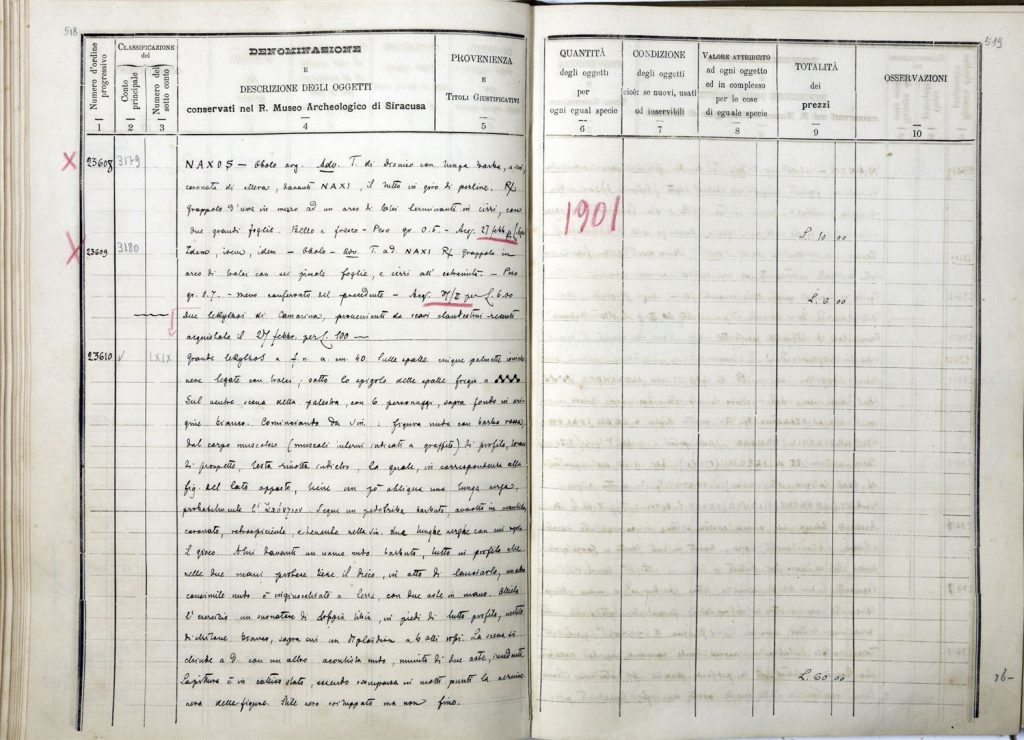 518
Numero d'ordine progressivo
CLASSIFICAZIONE dei
Conto principale
Numero del sotto conto
DENOMINAZIONE
E
DESCRIZIONE DEGLI OGGETTI
conservati nel R. Museo Archeologico di Siracusa
PROVENIENZA
E
TITOLI GIUSTIFICATIVI
1 2 3 4 5
X 23608 3179 NAXOS — Obolo arg. Adv. T di Dioniso con lunga barba, a sin,
coronata di ellera, davanti NAXI, il tutto in giro di perline. R/
grappolo d'uva in mezzo ad un arco di tralci terminanti in cirri, con
due grandi foglie. Bello e fresco — Peso gr. 0.5 — Acq. 27 febb. p.
X 23609 3180 Idem, idem, idem — Obolo — Adv T ad. NAXI R/ grappolo in
arco di tralci con piccole foglie, e cirri all'estremità. — Peso
gr. 0.7. — meno conservato del precedente — Acq. 27/II per £. 6.00
due lekythoi di Camarina, provenienti da scavi clandestini recenti
acquistate il 27 febb. per £. 100 —
23610 ✓ LXIX Grande lekythos a f. n. a. m. 40. Sulle spalle cinque palmette
nere legate con tralci; sotto lo spigolo delle spalle fregio a
Sul ventre scena della palestra, con 6 personaggi, sopra fondo in
bianco. Cominciando da sin.: figura nuda con barba rossa,
dal corpo muscoloso (muscoli interni indicati a graffito) di profilo,
di prospetto, testa rivolta indietro, la quale, in corrispondenza alla
fig. del lato opposto, tiene un pò obliqua una lunga verga,
probabilmente l' ἀκόντιον. Segue un pedotriba barbuto, avvolto in mantello
coronato, retrospiciente, e tenente nella sin. due lunghe verghe con cui regola
il gioco. A lui davanti un uomo nudo barbuto, tutto in profilo che
nelle due mani protese tiene il disco, in atto di lanciarlo, un altro
consimile nudo è inginocchiato a terra, con due aste in mano.
l'esercizio un suonatore di doppia tibia, in piedi di tutto profilo, vestito
di chitone bianco, sopra cui un diploidion a La scena si
chiude a d. con un altro acontista nudo, munito di due aste,
La pittura è in cattivo stato, essendo scomparsa in molti punti la vernice
nera delle figure. Stile nero sviluppato ma non fino.
519
QUANTITÀ
degli oggetti
per
ogni egual specie
CONDIZIONE
degli oggetti
cioè: se nuovi, usati
od inservibili
VALORE ATTRIBUITO
ad ogni oggetto
ed in complesso
per le cose
di eguale specie
TOTALITÀ
dei
prezzi
OSSERVAZIONI
6 7 8 9 10
1901
£. 10 00
£. 6 00
£. 60 00
76-